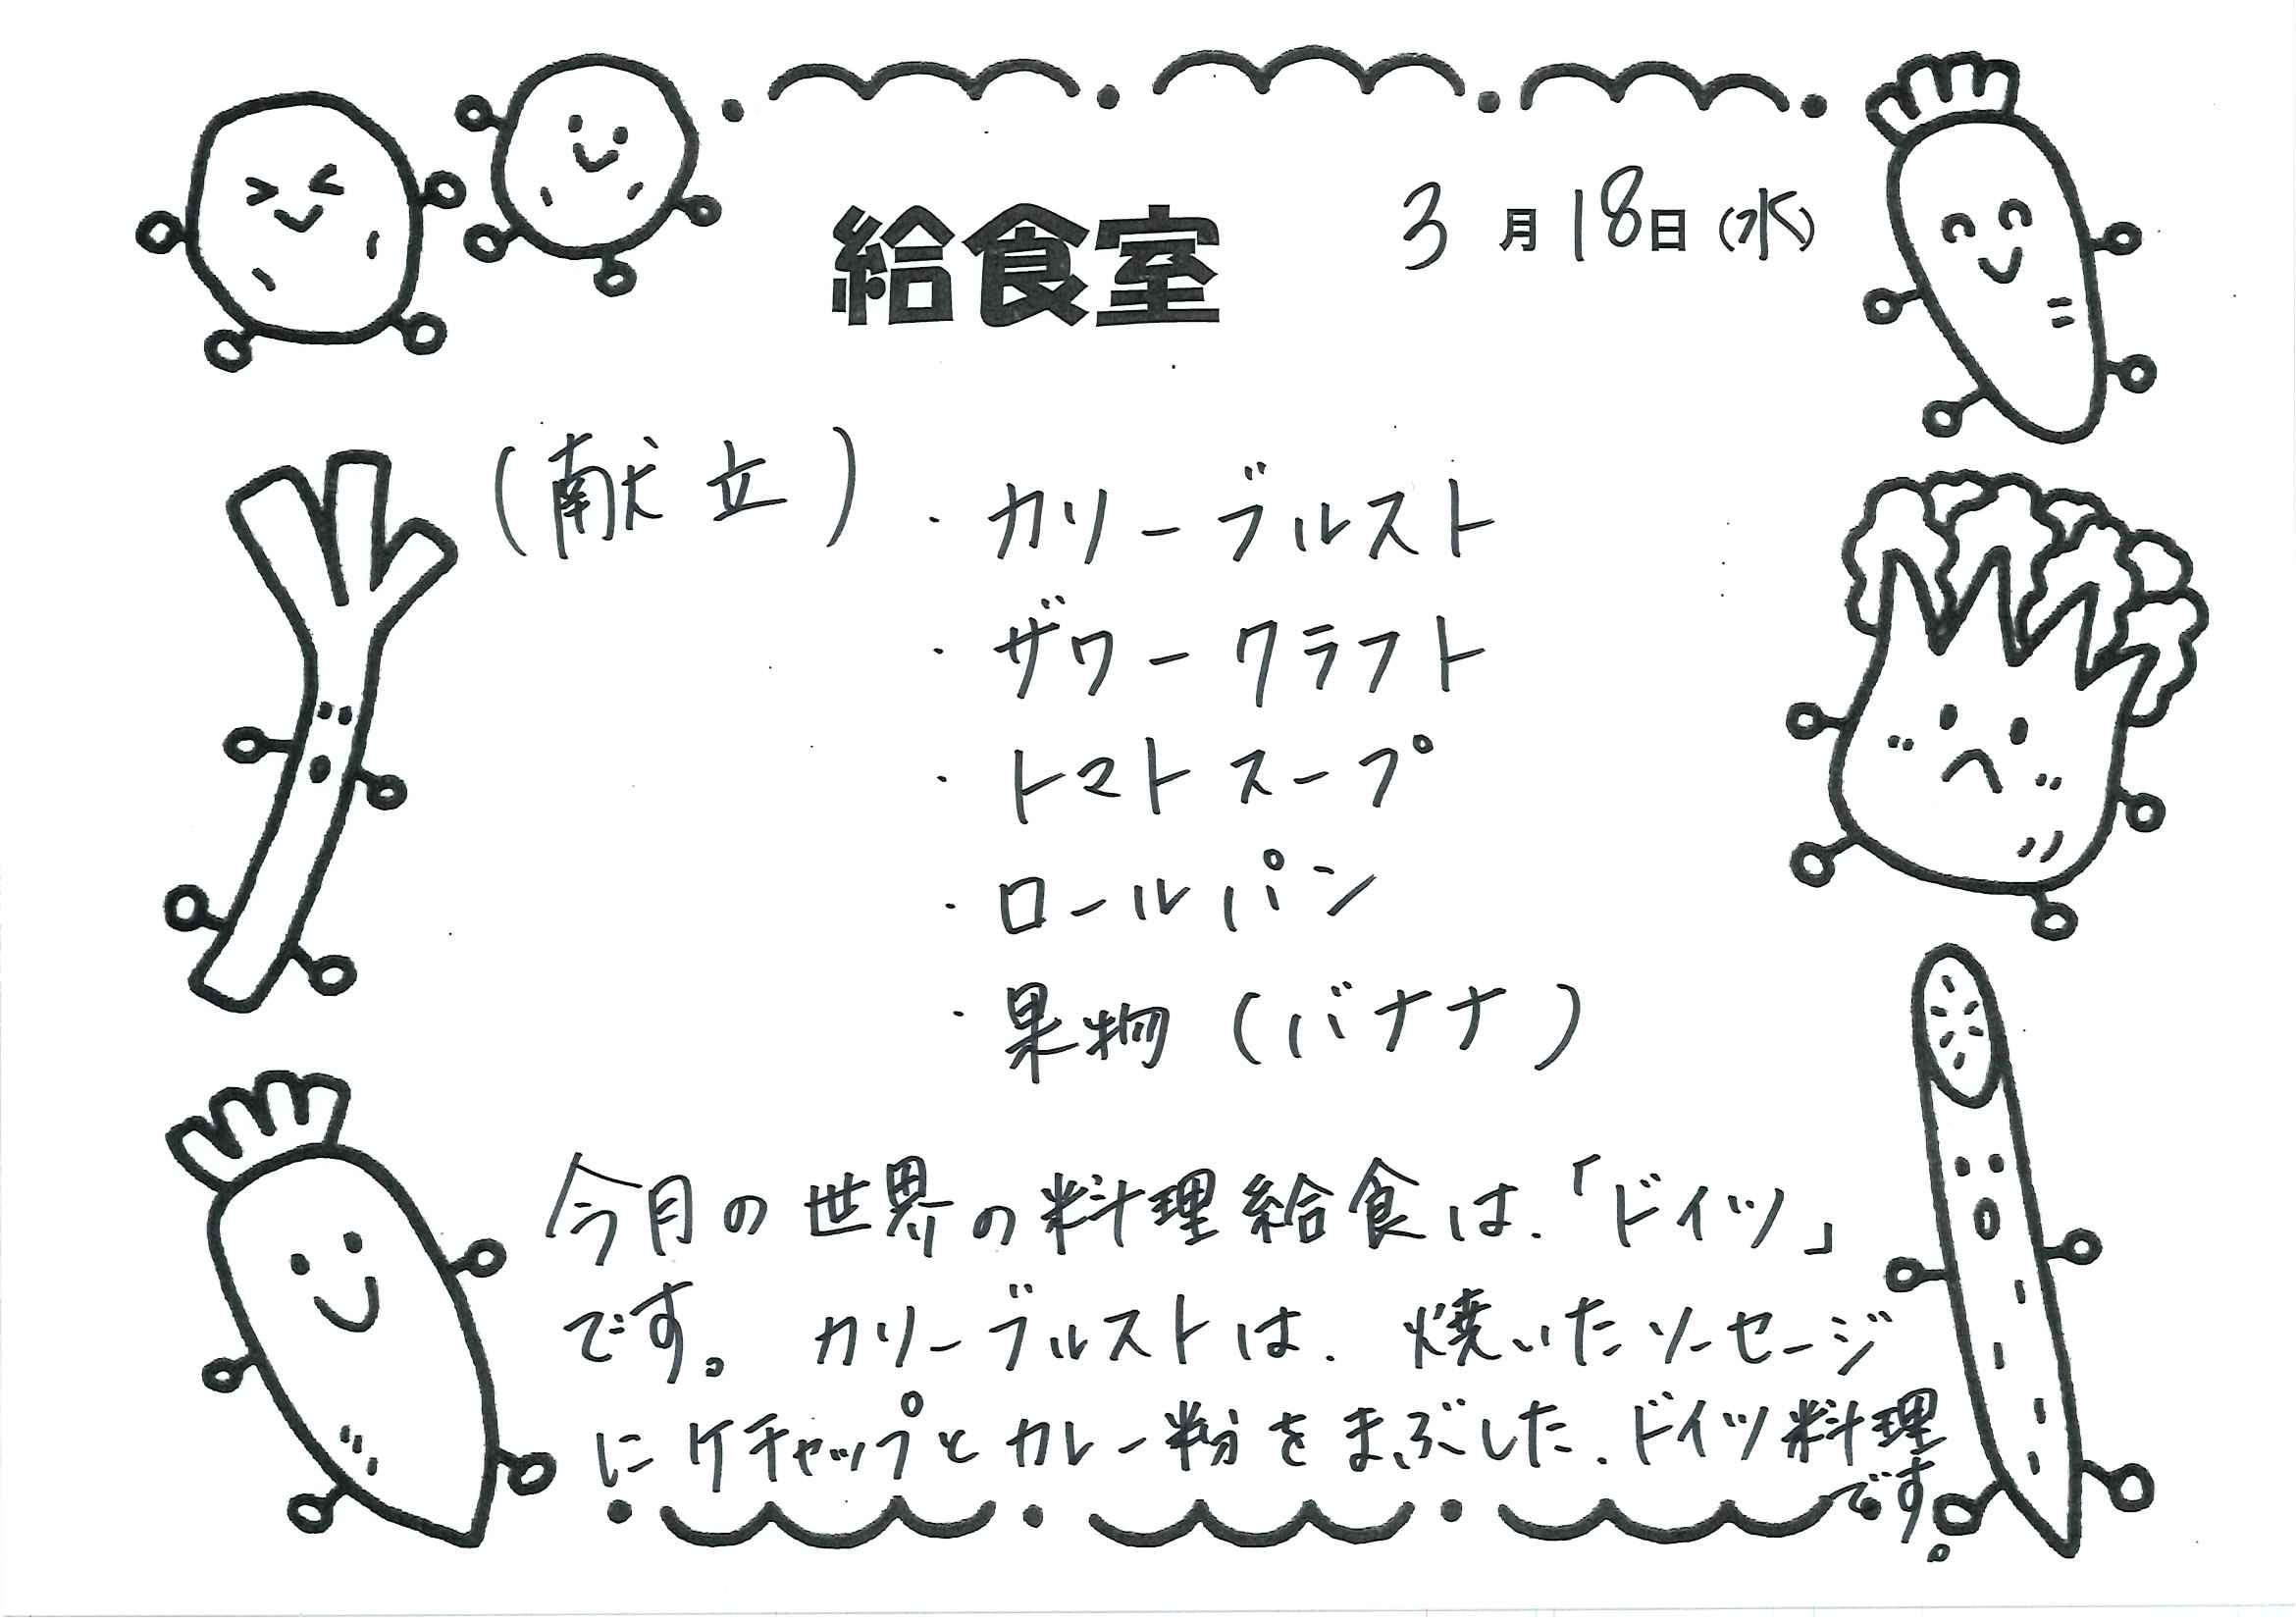 給食室
3月18日（水）
（献立）・カリーブルスト
・ザワークラフト
・トマトスープ
・ロールパン
・果物（バナナ）
今月の世界の料理給食は、「ドイツ」
です。カリーブルストは、焼いたソーセージ
にケチャップとカレー粉をまぶした、ドイツ料理
です。